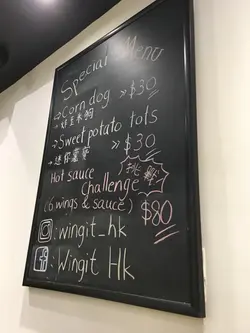 Special Menu
→ Corn dog → $30
→ 好玉米狗
→ Sweet potato tots
→ 迷你薯寶 → $30
Hot sauce 挑戰
Challenge
(6 wings & sauce) $80
: wingit_hk
: Wingit Hk